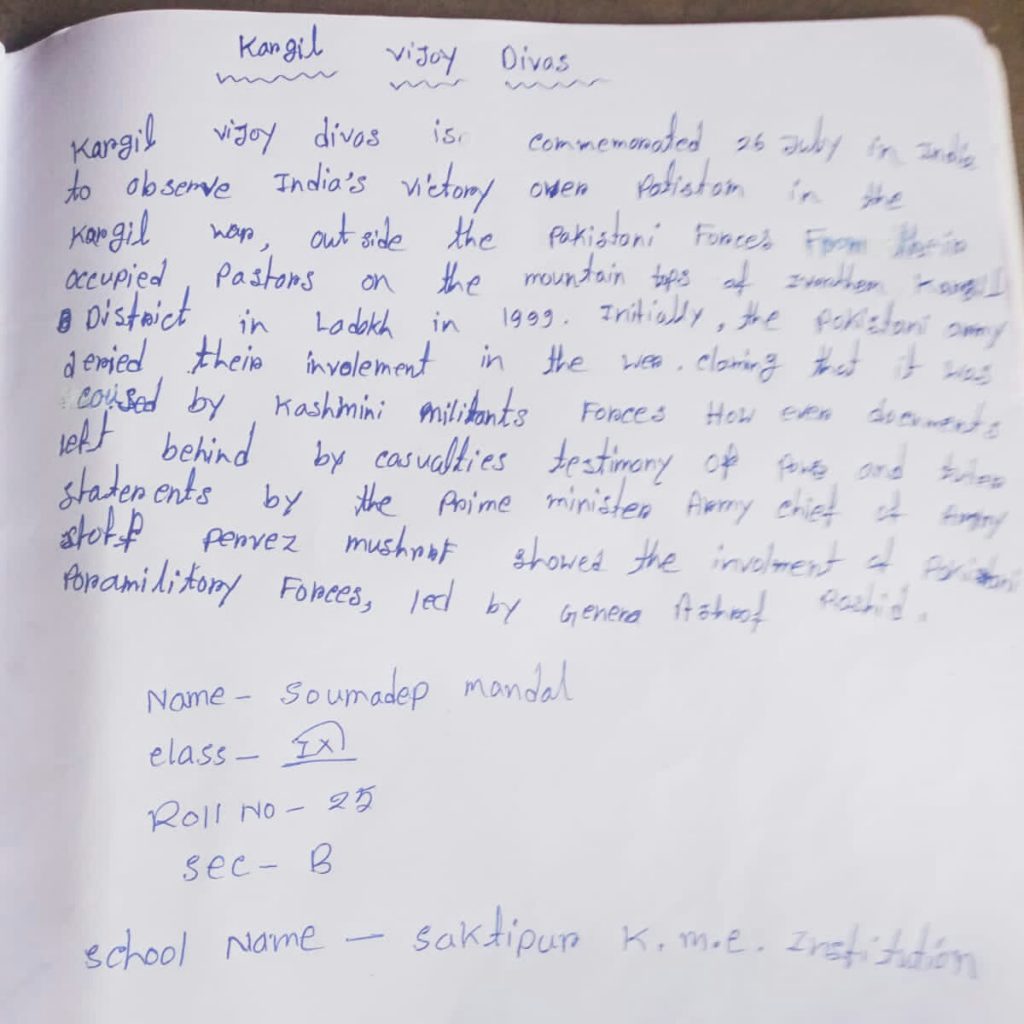 Kargil vijoy Divas
Kargil vijoy divas is commemorated 26 July in India
to observe India's victory over Pakistan in the
Kargil war, out side the Pakistani Forces From their
occupied Pastors on the mountain tops of Kargil
District in Ladakh in 1999. Initially, the Pakistani army
denied their involement in the war. claming that it was
caused by Kashmiri militants Forces How even documents
left behind by casualties testimony of and
statements by the Prime minister Army chief of Army
staff pervez mushraf showed the involment of Pakistani
Paramilitory Forces, led by Genera Ashraf Rashid.
Name - Soumadep mandal
class - IX
Roll No - 25
Sec - B
School Name - Saktipur K.m.c. Institution